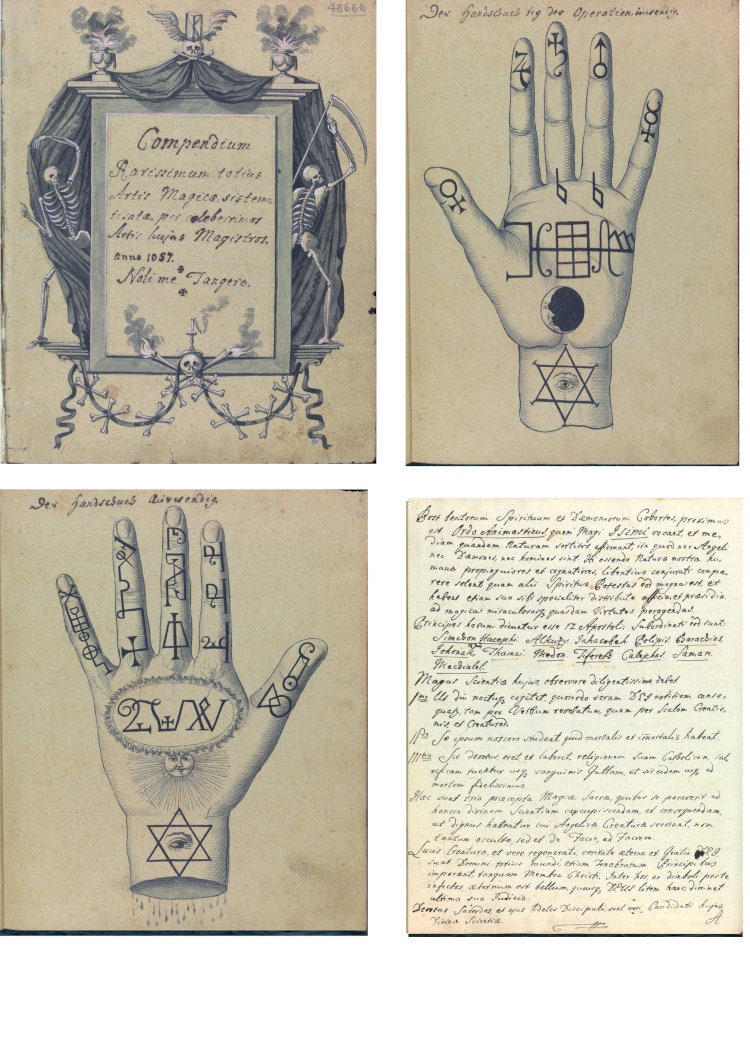 48666
Compendium
Rarissimum totius
Artis Magicæ sistema-
tisatæ per celeberrimos
Artis hujus Magistros.
anno 1057.
Noli me Tangere.
N
Der Handschuch der Operation inwendig.
Der Handschuch Auswendig.
Post beatorum Spirituum et Dæmoniorum Cohortes, proximus
est Ordo Animasticus, quem Magi Isimi vocant, et me-
diam quandam Naturam sortitos affirmant, ita quod nec Angeli
nec Dæmones, nec homines sint. Hi essendo Natura nostra hu-
mana propinquiores et cognatiores, libentius conjurati compa-
rere solent quam alii Spiritus. Potestas magna est, et
habent etiam sua sibi specialiter distributa officia et præsidia
ad magicas miraculosasq quasdam Virtutes peragendas.
Principes horum dicuntur esse 12 Apostoli. Subordinati sunt:
Simehon Hacephi. Alkuzy. Jahacobah. Polipis. Barachias
Johanah. Thamni. Medon. Tifereth. Calephas. Saman.
Macdialel.
Magus Scientiæ hujus, observare diligentissime debet
1mo Ut diu noctuq cogitet, quomodo veram DEI notitiam conse-
quatur, tam per Verbum revelatum, quam per Scalam Creatio-
nis et Creaturas.
IIdo Se ipsum noscere studeat quid mortalis et immortalis habeat.
IIItio Sit devotus, oret et laboret, religionem suam Catholicam, sal-
vificam tueatur usq sanguinis Guttam, et sit eidem usq ad
mortem fidelissimus.
Hæc sunt tria præcepta Magiæ Sacræ, quibus se præparet ad
hancce divinam Scientiam concupiscendam, et consequendam,
ut dignus habeatur cui Angelicæ Creaturæ serviant, non
tantum occulto, sed et de Facie, ad Faciem.
Lucis Creaturæ, et vere regenerati, veritate æterna et Gratia DEI
sunt Domini totius mundi, etiam Tenebrarum Principibus
imperant, tanquam Membra Christi. Inter hos et diaboli peste
infectos, æternum est bellum, quousq DEUS litem hanc dirimet
ultimo suo Judicio.
Devotus Sacerdos et ejus fideles Discipuli sunt veri Candidati hujus
Divinæ Scientiæ.